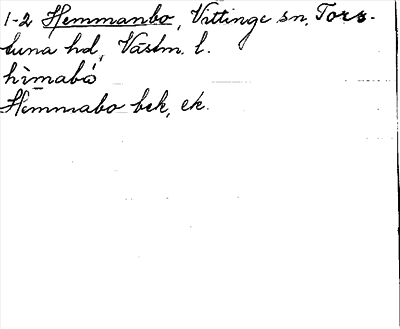 1-2 Hemmanbo, Vittinge sn, Tors-
tuna hd, Västm. l.
hìmabó
Hemmabo bek, ek.